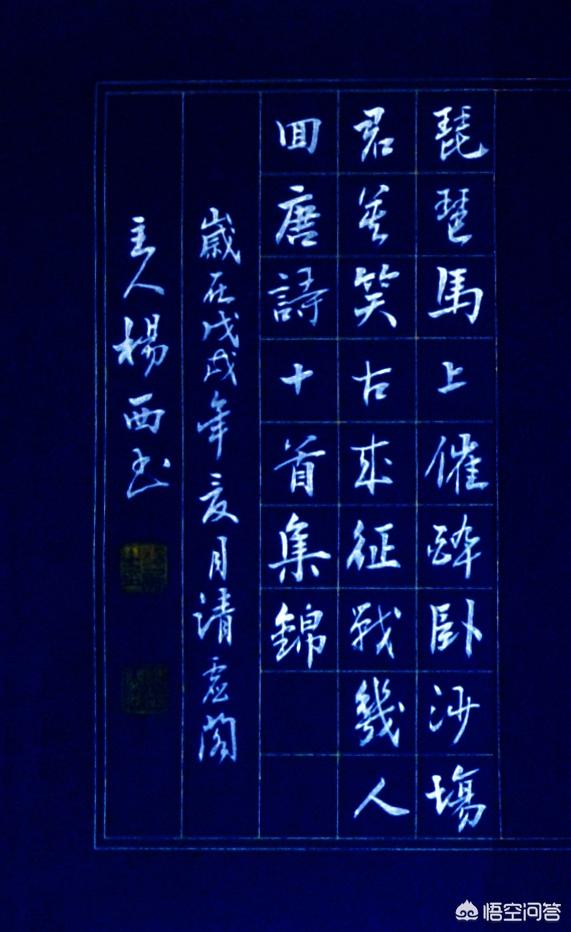 琵琶馬上催醉卧沙場
君莫笑古来征戰幾人
回唐詩十首集錦
歲在戊戌年夏月清虛閣
主人楊西书
悟空问答